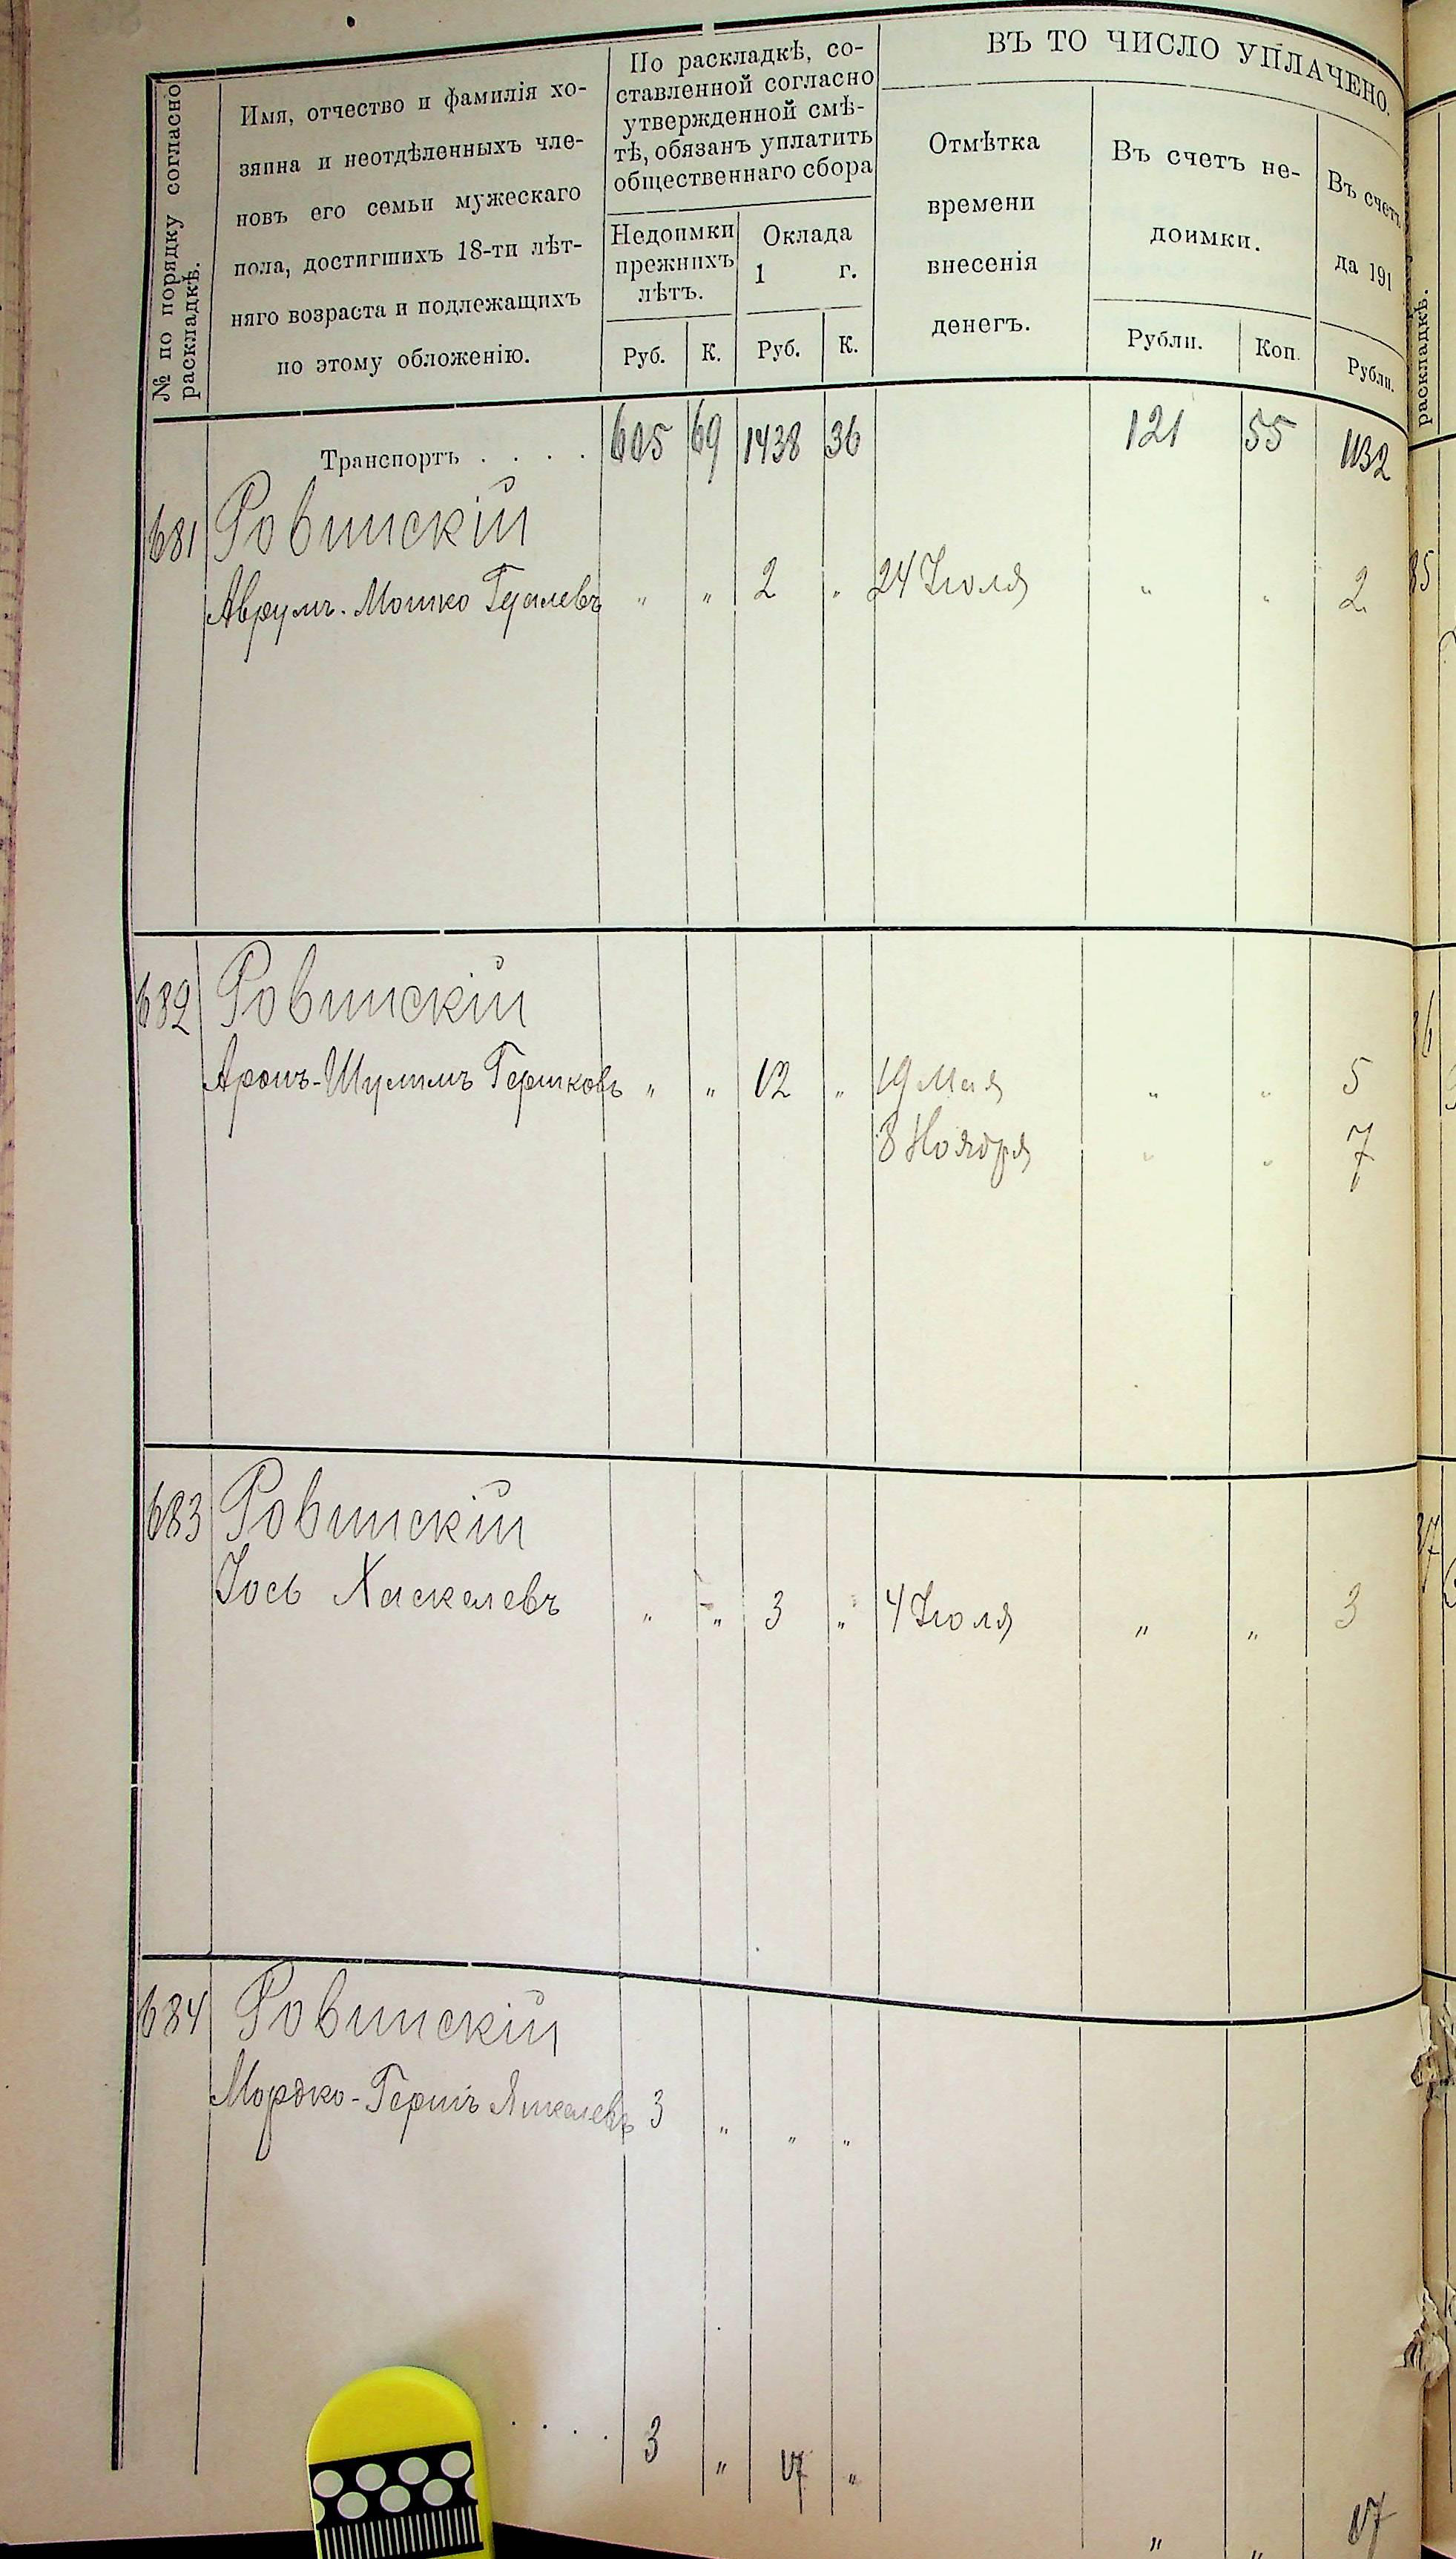 № по порядку согласно
раскладкѣ.
Имя, отчество и фамилія хо-
зяина и неотдѣленныхъ чле-
новъ его семьи мужескаго
пола, достигшихъ 18-ти лѣт-
няго возраста и подлежащихъ
по этому обложенію.
По раскладкѣ, со-
ставленной согласно
утвержденной смѣ-
тѣ, обязанъ уплатить
общественнаго сбора
Недоимки
прежнихъ
лѣтъ.
Оклада
1 г.
Руб. К. Руб. К.
ВЪ ТО ЧИСЛО УПЛАЧЕНО.
Отмѣтка
времени
внесенія
денегъ.
Въ счетъ не-
доимки.
Рубли. Коп.
Въ счетъ
да 191
Рубли.
Транспортъ . . . . 605 69 1438 36 121 55 1132
681 Ровинскій
Аврумъ-Мошко Гдалевъ " " 2 " 24 Іюля " " 2
682 Ровинскій
Аронъ-Шулимъ Гершковъ " " 12 " 19 Мая " " 5
8 Ноября " " 7
683 Ровинскій
Іось Хаскелевъ " " 3 " 4 Іюля " " 3
684 Ровинскій
Мордко-Гершъ Янкелевъ 3 " " "
. . . . 3 " 17 " " " 17
раскладкѣ.
85